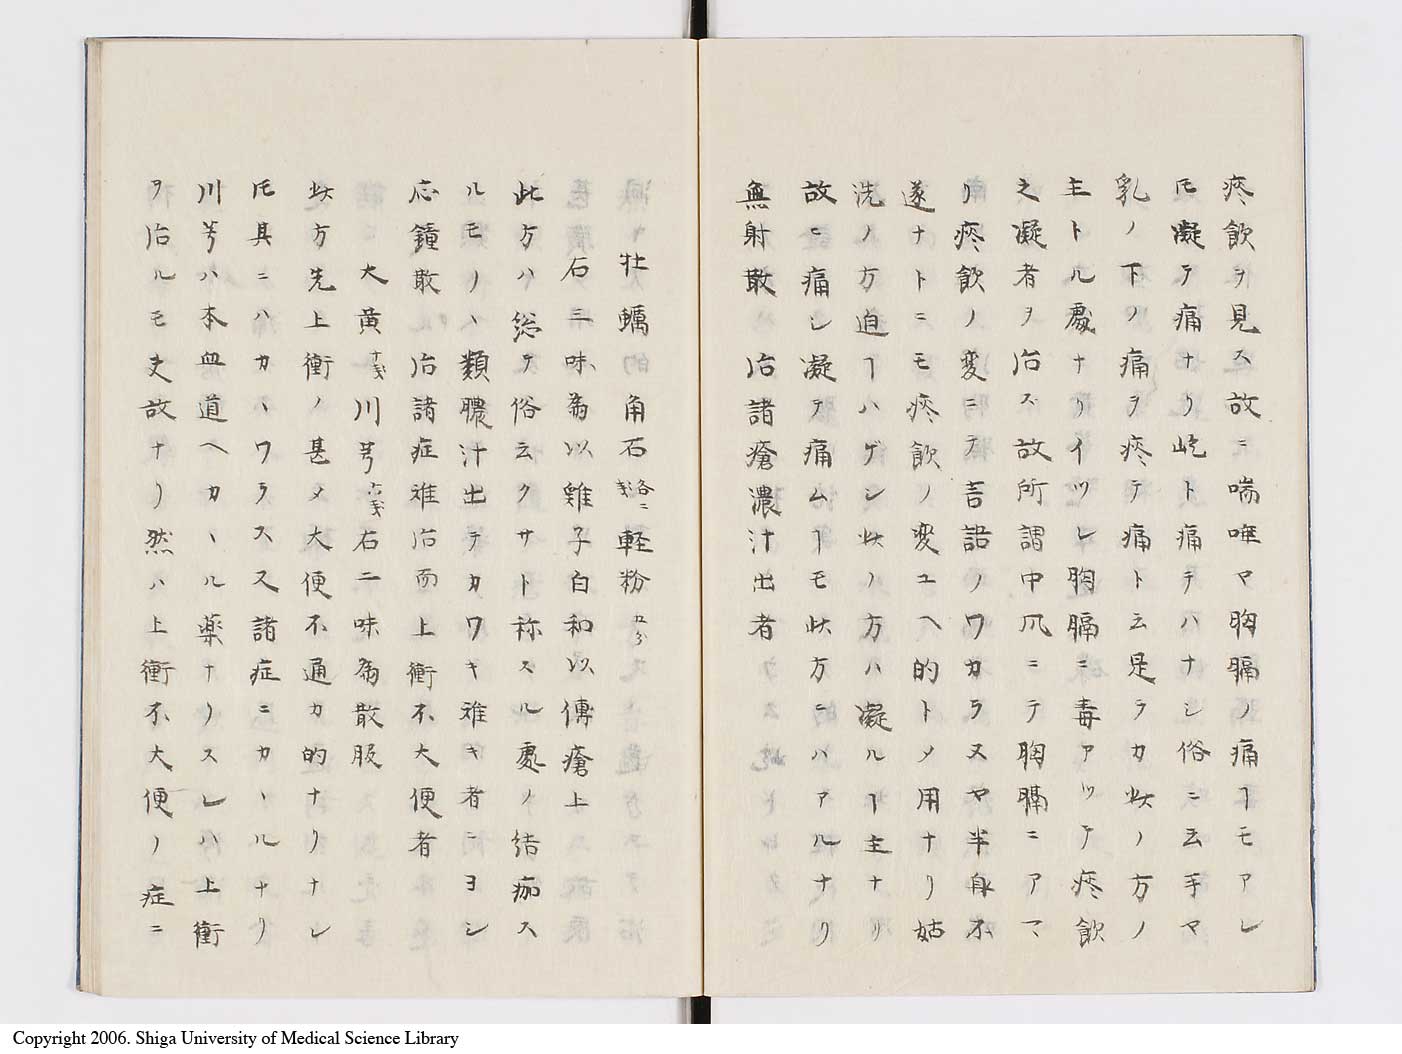 痰飲ヲ見ス故ニ喘唾マ胸膈ノ痛ヿモアレ
𪜈凝テ痛ナリ屹ト痛テハナシ俗ニ云手マ
乳ノ下ノ痛ヲ痰テ痛ト云是ラカ此ノ方ノ
主トル処ナリイツレ胸膈ニ毒アツテ痰飲
之凝者ヲ治ズ故所謂中風ニテ胸膈ニアマ
リ痰飲ノ変ニテ言語ノワカラヌマ半身不
遂ナトニモ痰飲ノ変ユヘ的トメ用ナリ姑
洗ノ方迫ヿハゲシ此ノ方ハ凝ルヿ主ナリ
故ニ痛レ凝テ痛ムヿモ此方ニハアルナリ
無射散 治諸瘡濃汁出者
牡蠣 角石各二戔軽粉五分
石三味為以雞子白和以傅瘡上
此方ハ総テ俗云クサト称スル処ノ結痂ス
ルモノヽ類膿汁出テカワキ難キ者ニヨシ
応鐘散 治諸症難治而上衝不大便者
大黄十戔川芎六戔右二味為散服
此方先上衝ノ甚メ大便不通カ的ナリナレ
𪜈其ニハカヽワラスス諸症ニカヽルナリ
川芎ハ本血道ヘカヽル薬ナリスレハ上衝
ヲ治ルモ夫故ナリ然ハ上衝不大便ノ症ニ
Copyright 2006. Shiga University of Medical Science Library